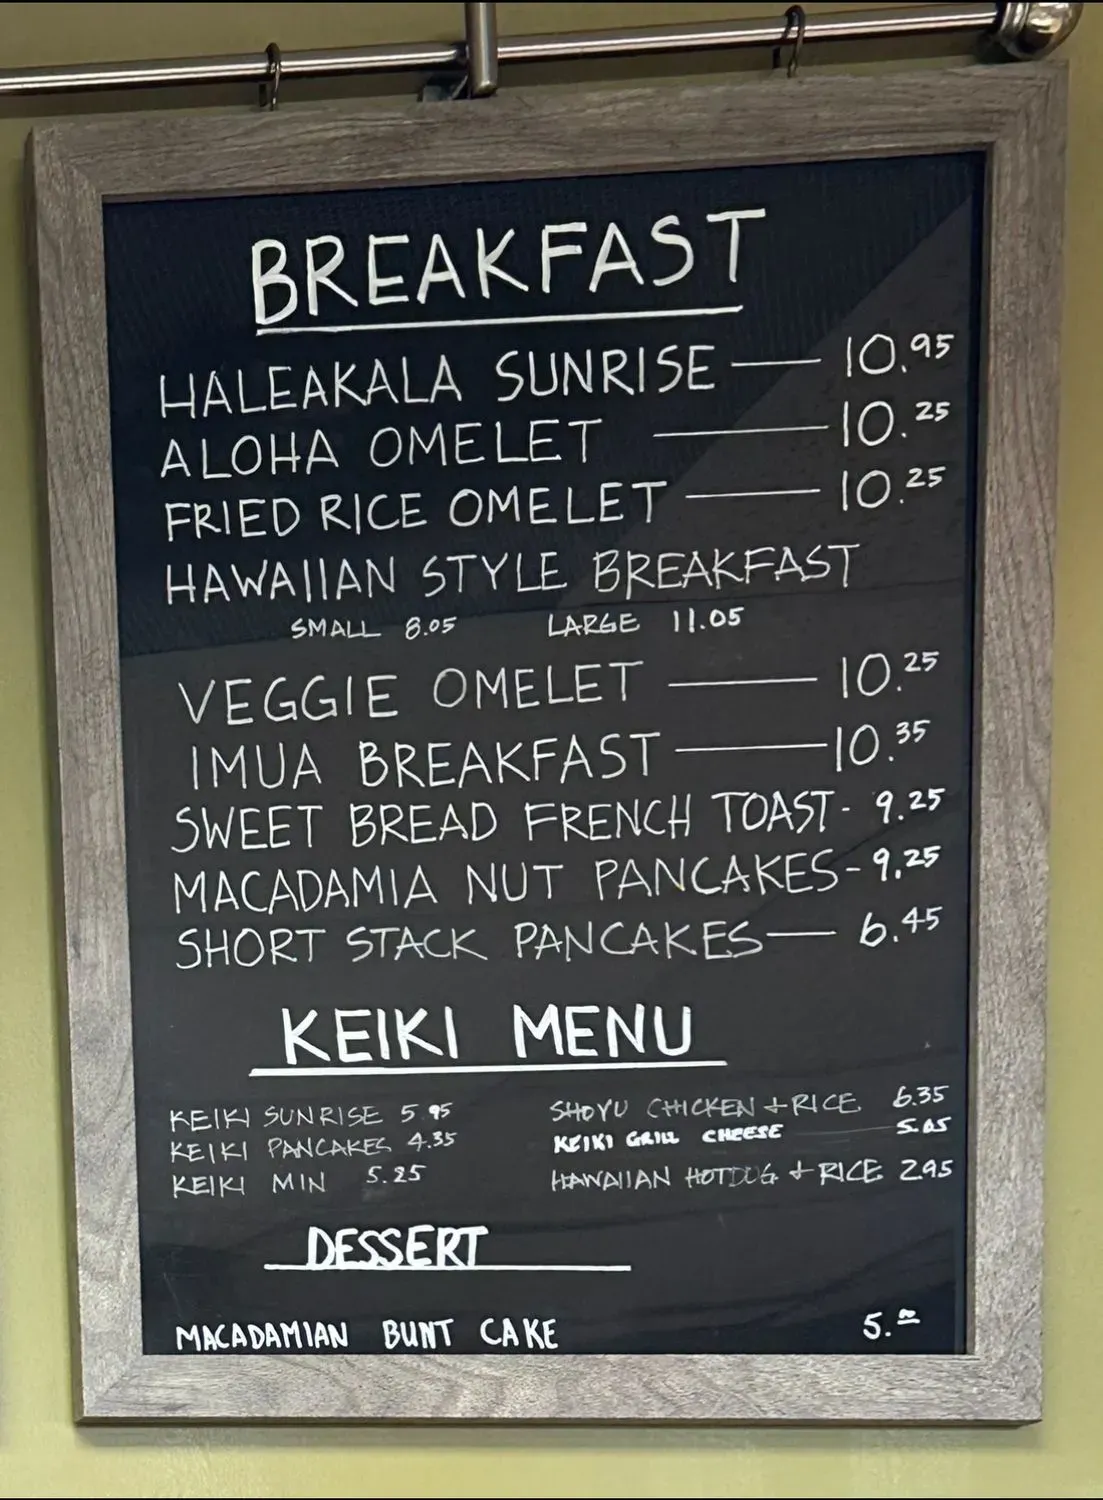 BREAKFAST
HALEAKALA SUNRISE — 10.95
ALOHA OMELET — 10.25
FRIED RICE OMELET — 10.25
HAWAIIAN STYLE BREAKFAST
SMALL 8.05 LARGE 11.05
VEGGIE OMELET — 10.25
IMUA BREAKFAST — 10.35
SWEET BREAD FRENCH TOAST - 9.25
MACADAMIA NUT PANCAKES - 9.25
SHORT STACK PANCAKES — 6.45
KEIKI MENU
KEIKI SUNRISE 5.95
KEIKI PANCAKES 4.35
KEIKI MIN 5.25
SHOYU CHICKEN + RICE 6.35
KEIKI GRILL CHEESE — 5.05
HAWAIIAN HOTDOG + RICE 2.95
DESSERT
MACADAMIAN BUNT CAKE 5.